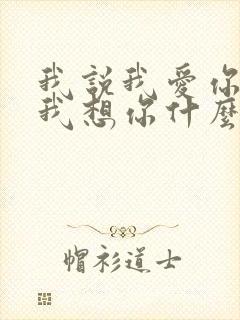 我說我愛你
我想你什麼
帽衫道士